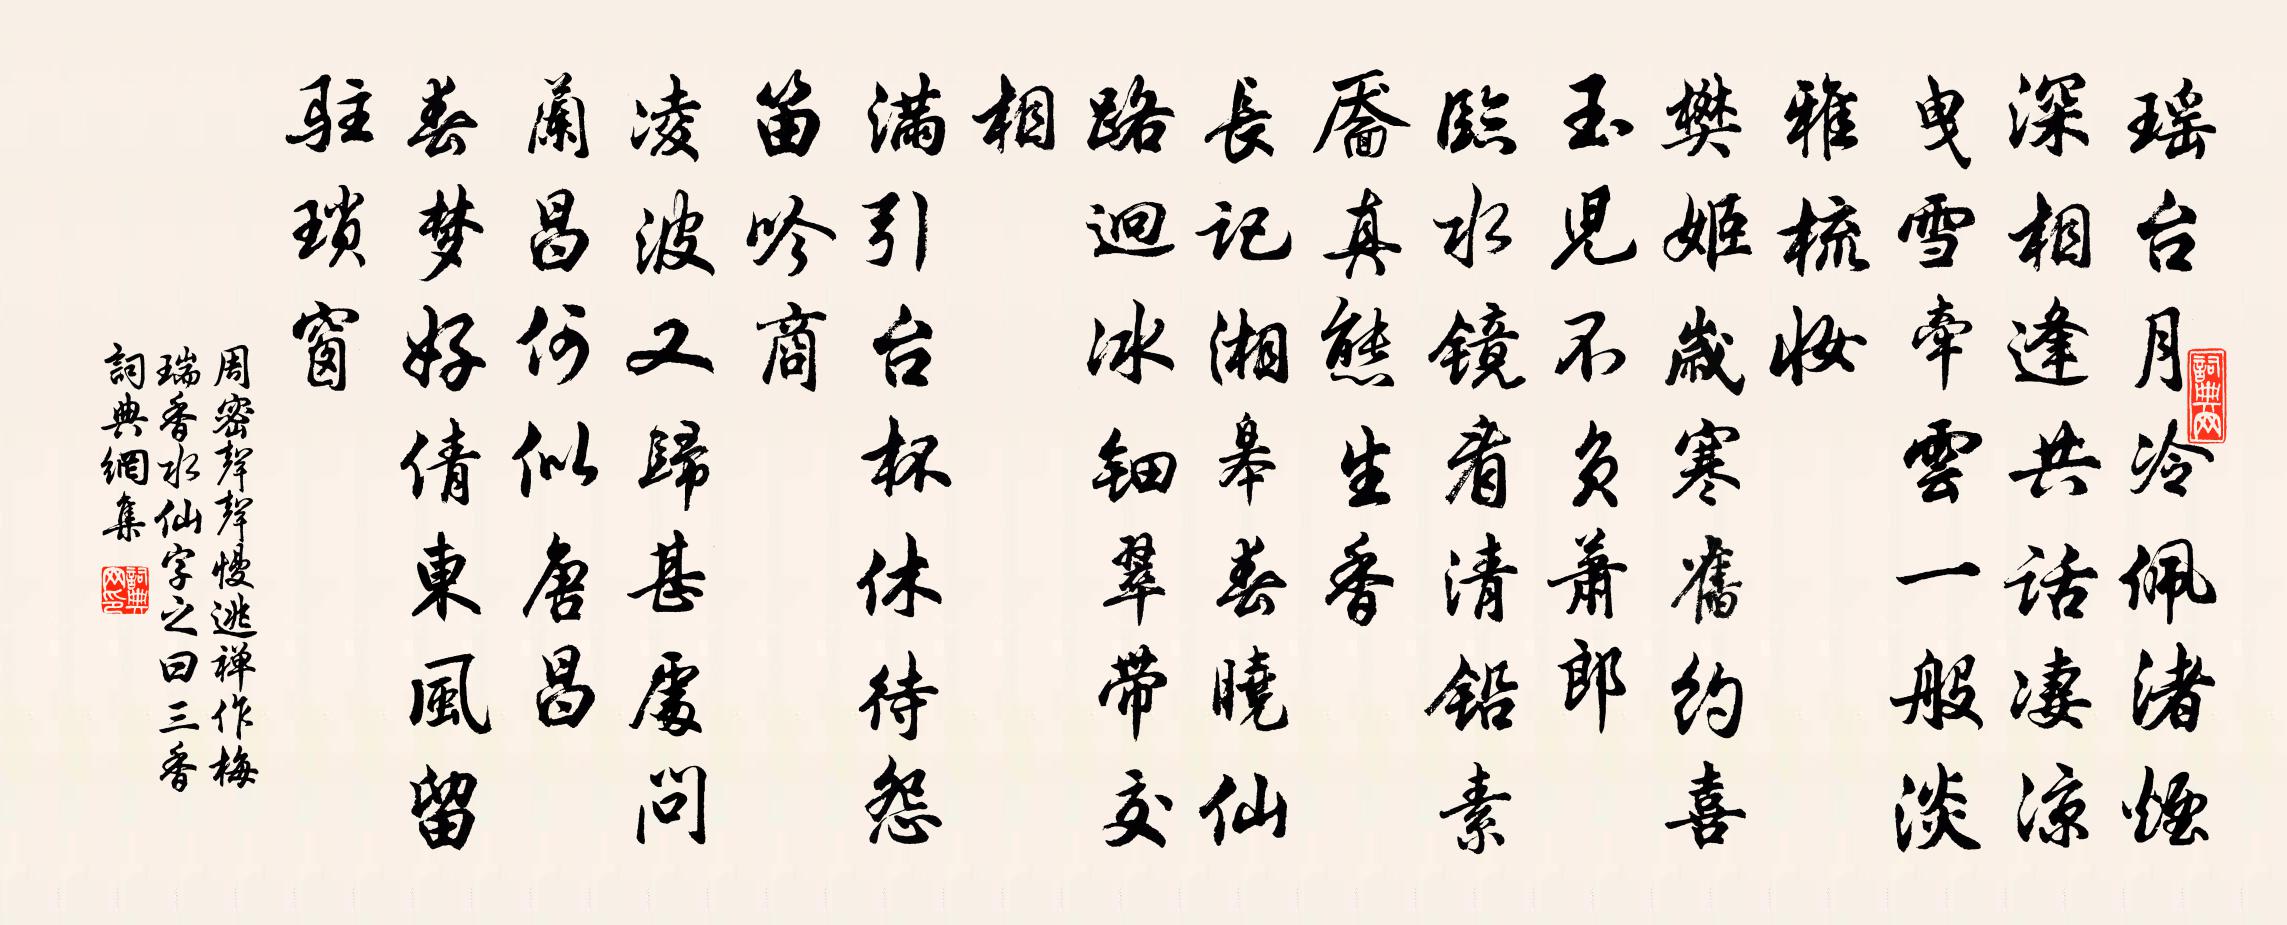 瑶台月冷佩渚煙
深相逢共話凄涼
曳雪牽雲一般淡
雅梳妝
樊姬歲寒舊約喜
玉兒不負蕭郎
臨水鏡看清鉛素
靨真態生香
長記湘皋春曉仙
路迥冰鈿翠帶交
相
滿引台杯休待怨
笛吟商
凌波又歸甚處問
蘭昌何似唐昌
春梦好倩東風留
駐瑣窗
周密聲聲慢逃禅作梅
瑞香水仙字之曰三香
詞典網集
詞典网
詞典网印